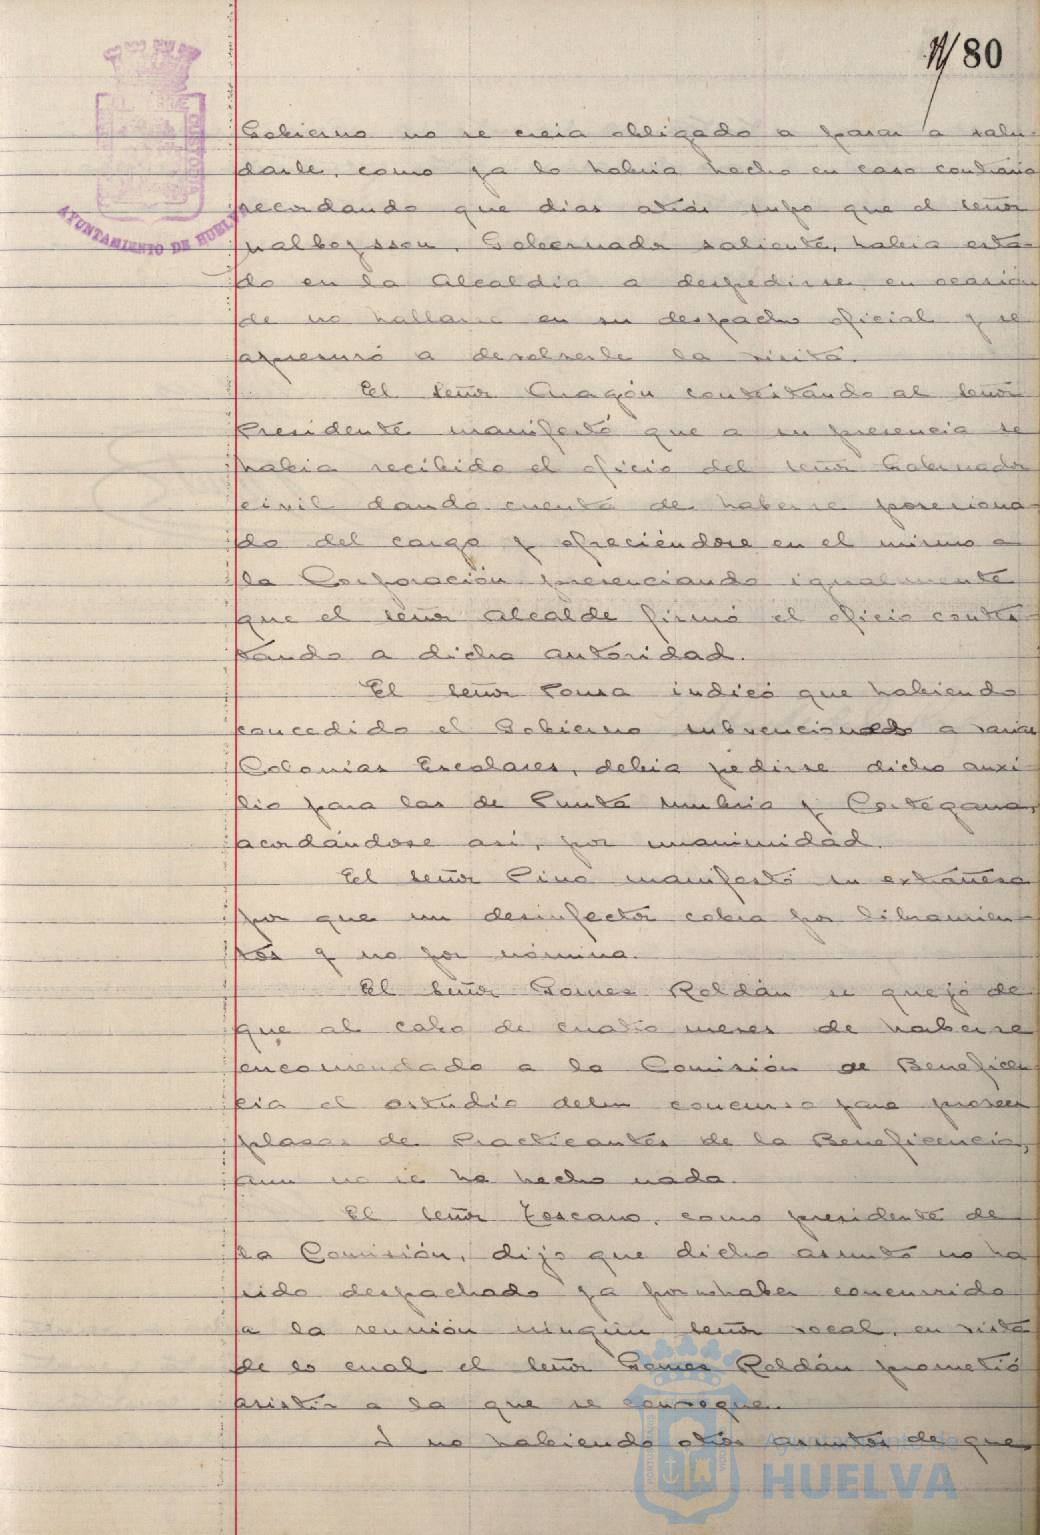 80
Gobierno no se creia obligado a pasar a salu-
darle, como ya lo habria hecho en caso contrario
recordando que dias atrás supo que el señor
Gobernador saliente, habia esta-
do en la Alcaldía a despedirse en ocasión
de no hallarse en su despacho oficial y se
apresuró a devolverle la visita.
El señor Aragón contestando al señor
Presidente manifestó que a su presencia se
habia recibido el oficio del señor Gobernador
civil dando cuenta de haberse posesiona-
do del cargo y ofreciéndose en el mismo a
la Corporación presenciando igualmente
que el señor Alcalde firmó el oficio contes-
tando a dicha autoridad.
El señor Ponsa indicó que habiendo
concedido el Gobierno subvenciones a varias
Colonias Escolares, debia pedirse dicho auxi-
lio para las de Punta Umbria y Cortegana,
acordándose asi, por unanimidad.
El señor Pino manifestó su extrañesa
por que un desinfector cobra por libramien-
tos y no por nómina.
El señor Gomez Roldán se quejó de
que al cabo de cuatro meses de haberse
encomendado a la Comisión de Beneficen-
cia el estudio del concurso para proveer
plazas de Practicantes de la Beneficencia,
aun no se ha hecho nada.
El señor Toscano, como presidente de
la Comisión, dijo que dicho asunto no ha
sido despachado ya por no haber concurrido
a la reunión ningún señor vocal, en vista
de lo cual el señor Gomez Roldán prometió
asistir a la que se convoque.
Y no habiendo otros asuntos de que
AYUNTAMIENTO DE HUELVA
Ayuntamiento de
HUELVA